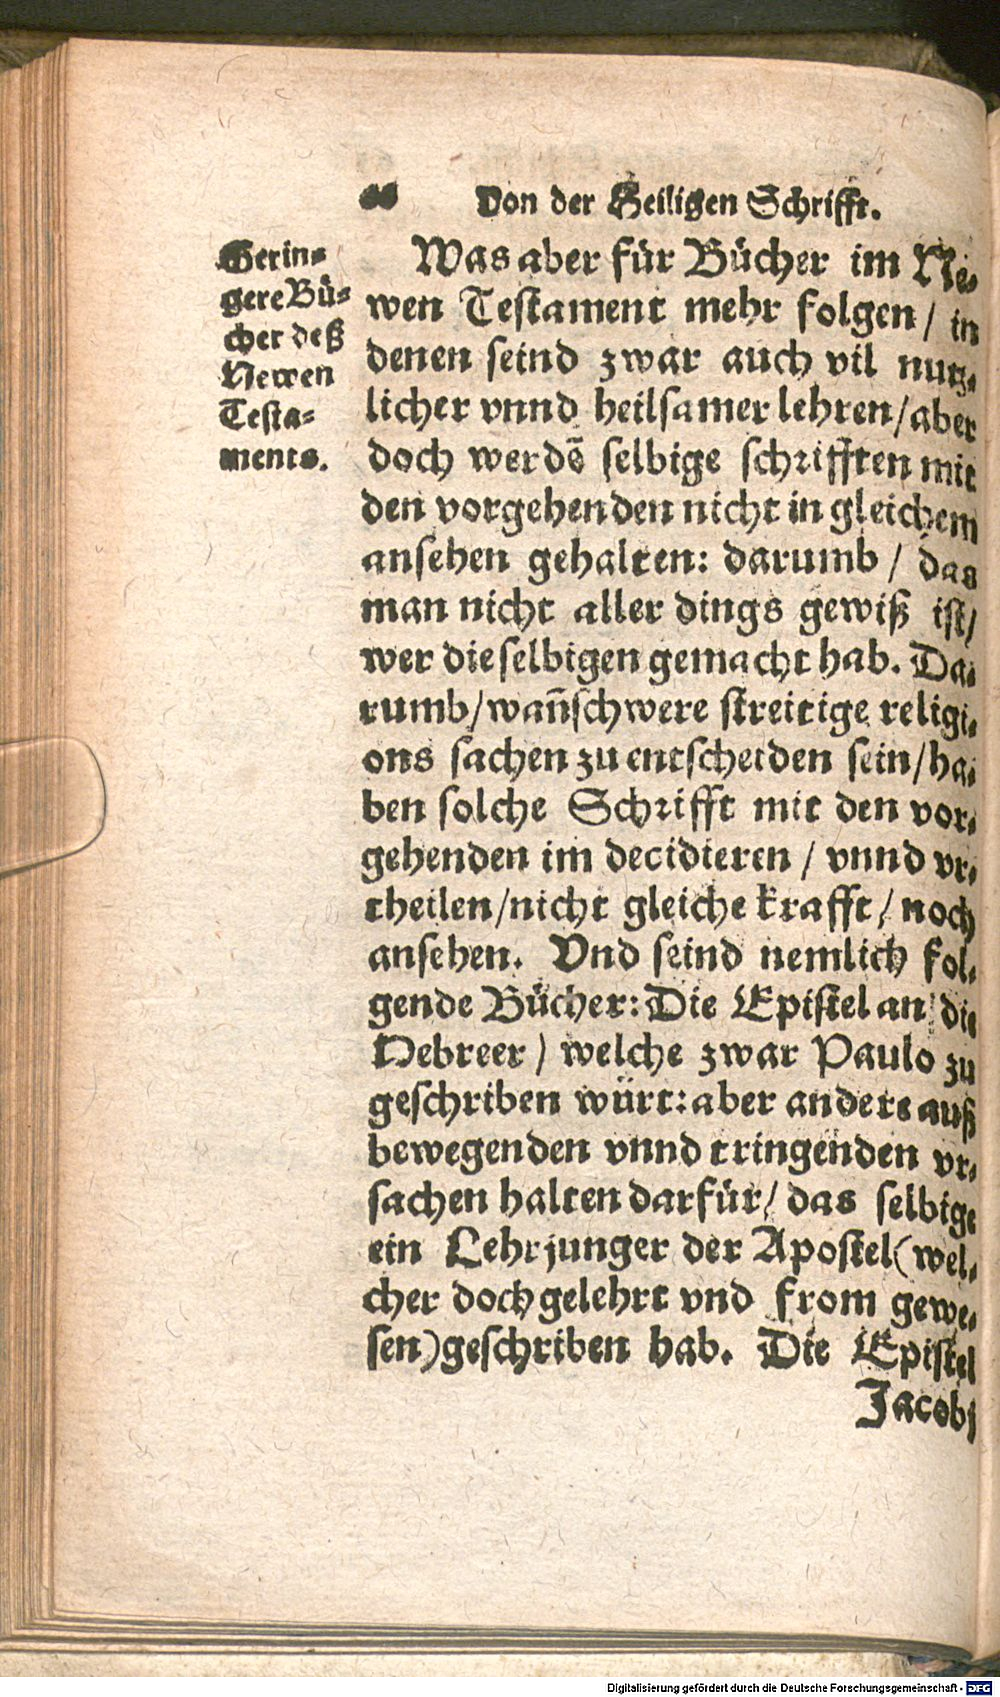 Von der Heiligen Schrifft.
Gerin=
gere Bü=
cher deß
Newen
Testa=
ments.
Was aber für Bücher im Ne=
wen Testament mehr folgen / in
denen seind zwar auch vil nutz=
licher vnnd heilsamer lehren / aber
doch werdē selbige schrifften mit
den vorgehenden nicht in gleichem
ansehen gehalten: darumb / das
man nicht aller dings gewiß ist /
wer dieselbigen gemacht hab. Da=
rumb / wañ schwere streitige religi=
ons sachen zu entscheiden sein / ha=
ben solche Schrifft mit den vor=
gehenden im decidieren / vnnd vr=
theilen / nicht gleiche krafft / noch
ansehen. Vnd seind nemlich fol=
gende Bücher: Die Epistel an die
Hebreer / welche zwar Paulo zu
geschriben würt: aber andere auß
bewegenden vnnd tringenden vr=
sachen halten darfür / das selbige
ein Lehrjunger der Apostel (wel=
cher doch gelehrt vnd from gewe=
sen) geschriben hab. Die Epistel
Jacobj
Digitalisierung gefördert durch die Deutsche Forschungsgemeinschaft - DFG